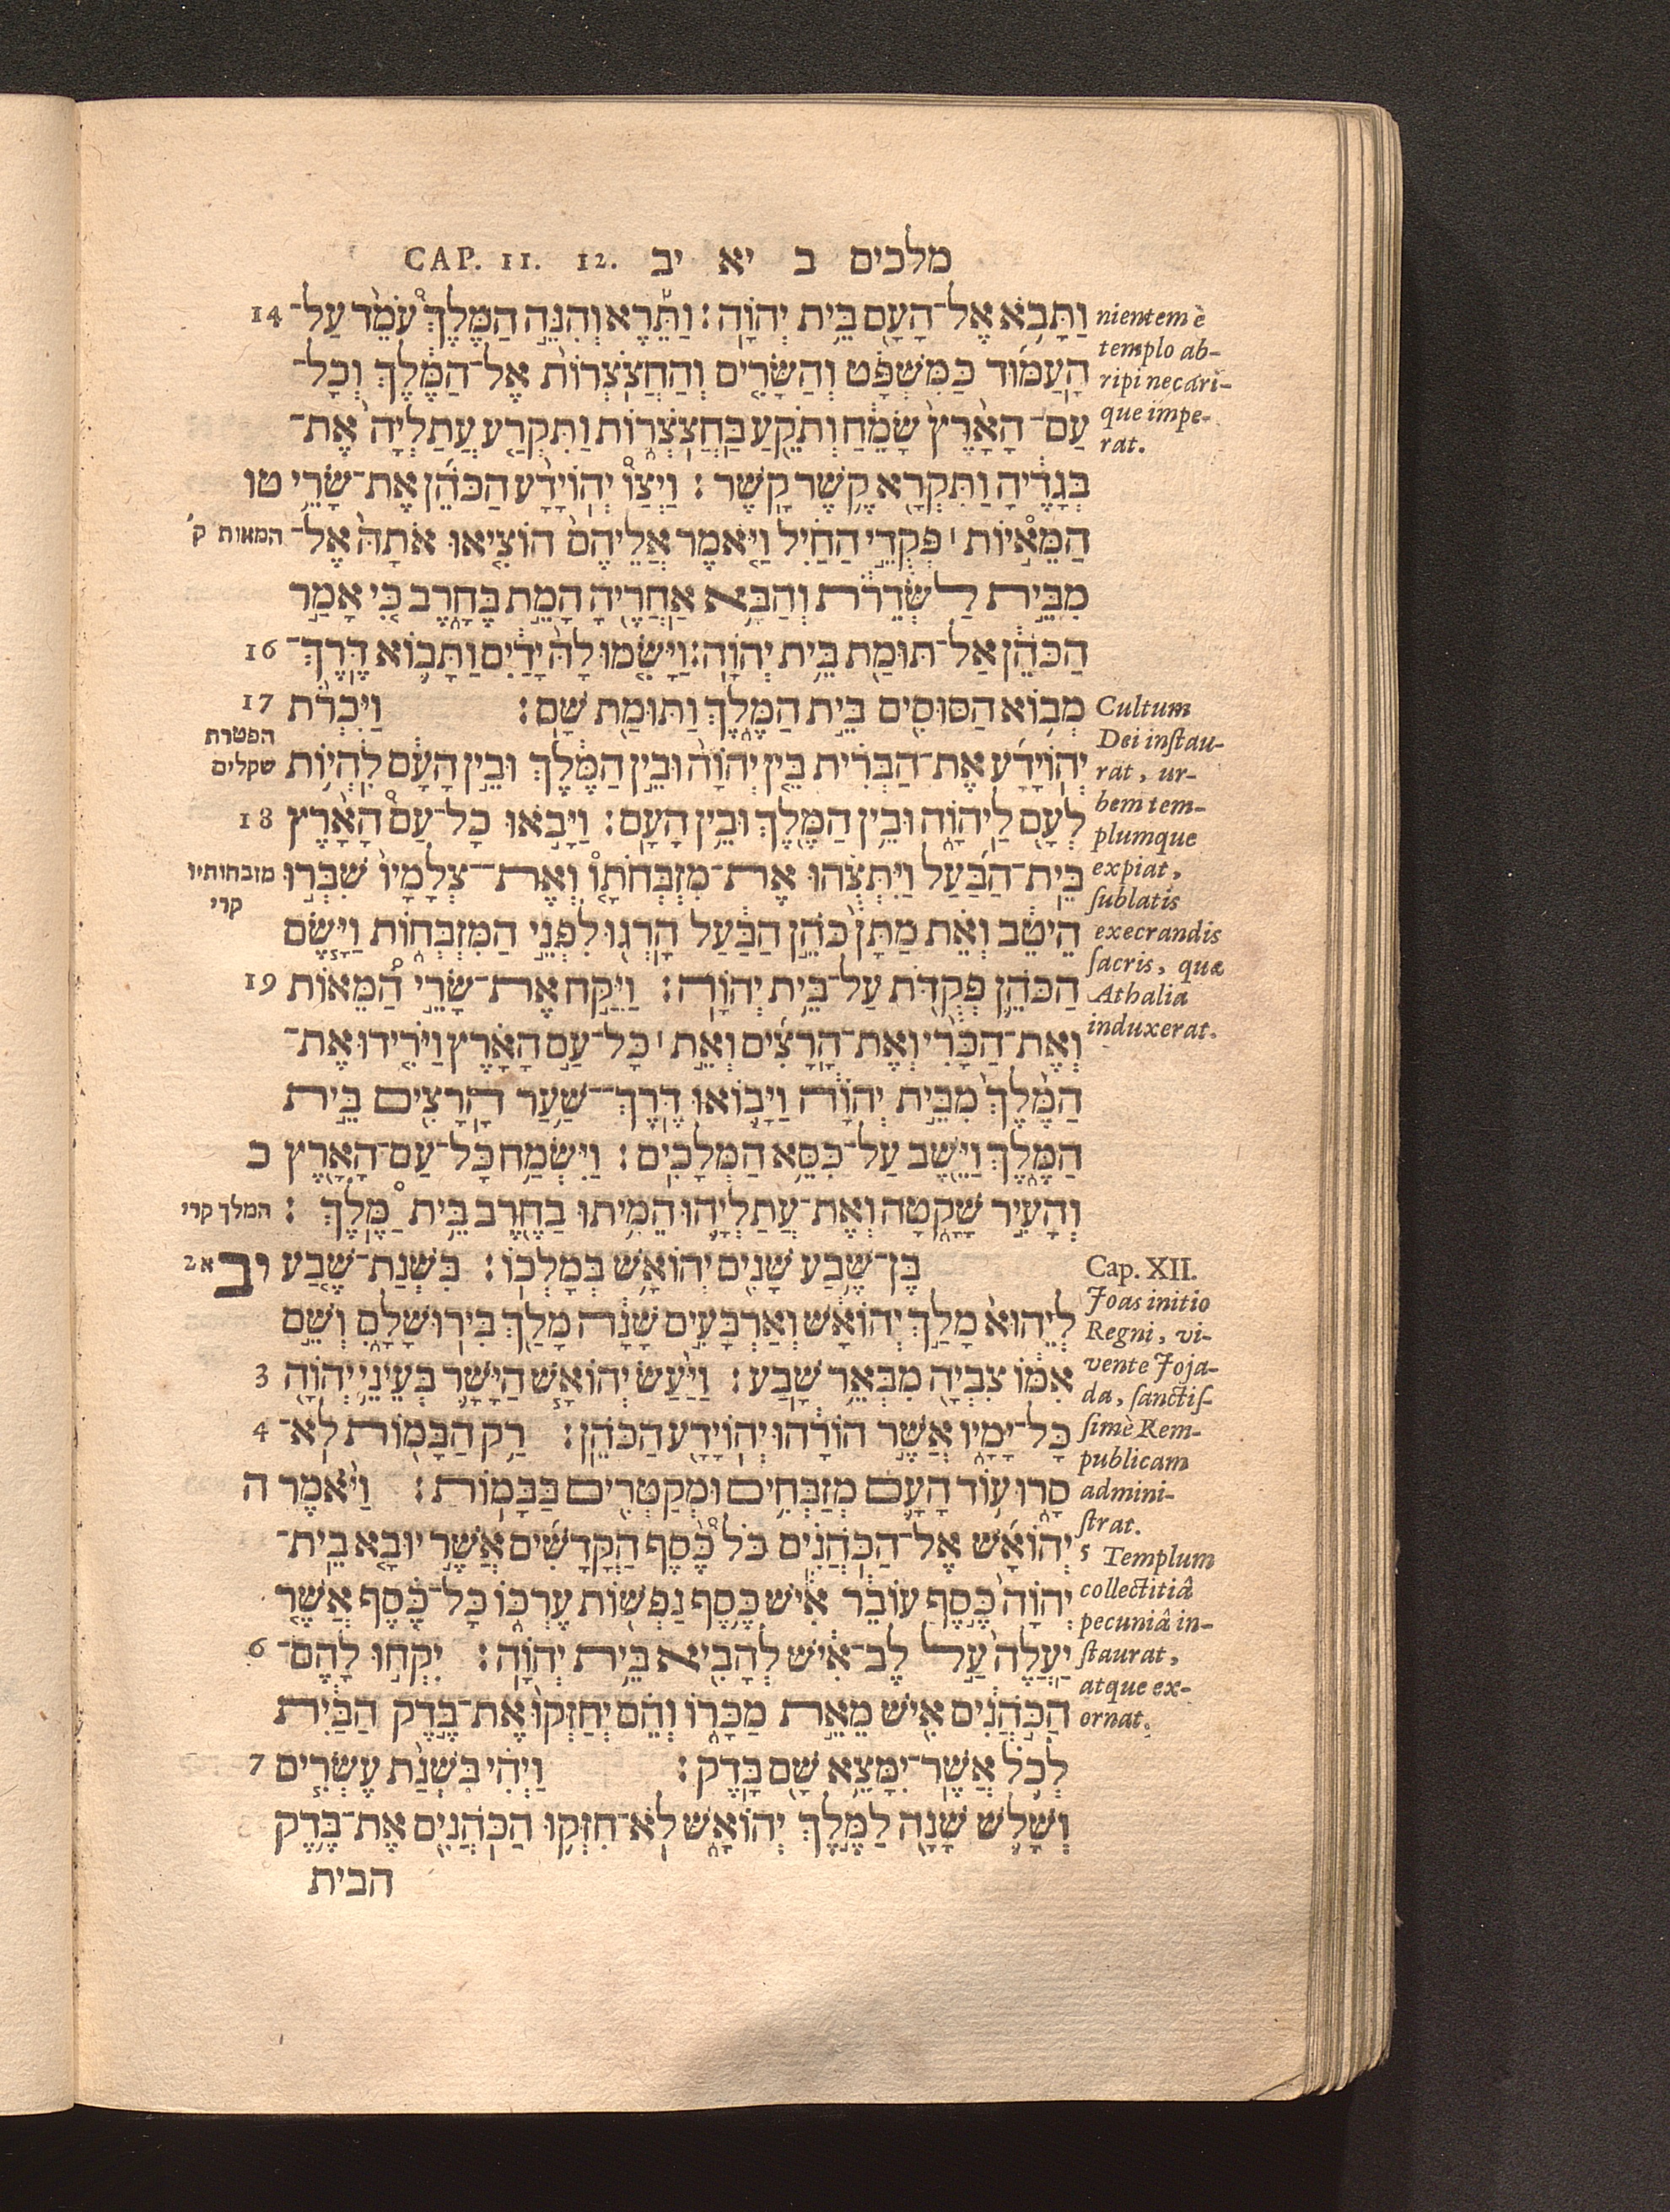 מלכים ב יא יב CAP. 11. 12.
וַתָּבֹא אֶל־הָעָם בֵּית יְהוָֹה׃ וַתֵּרֶא וְהִנֵּה הַמֶּלֶךְ עֹמֵד עַל־ 14
הָעַמּוּד כַּמִּשְׁפָּט וְהַשָּׂרִים וְהַחֲצֹצְרוֹת אֶל־הַמֶּלֶךְ וְכָל־
עַם־הָאָרֶץ שָׂמֵחַ וְתֹקֵעַ בַּחֲצֹצְרוֹת וַתִּקְרַע עֲתַלְיָה אֶת־
בְּגָדֶיהָ וַתִּקְרָא קֶשֶׁר קָשֶׁר׃ וַיְצַו יְהוֹיָדָע הַכֹּהֵן אֶת־שָׂרֵי טו
הַמֵּאיוֹת ׀ פְּקֻדֵי הַחַיִל וַיֹּאמֶר אֲלֵיהֶם הוֹצִיאוּ אֹתָהּ אֶל־ המאות ק׳
מִבֵּית לַשְּׂדֵרֹת וְהַבָּא אַחֲרֶיהָ הָמֵת בֶּחָרֶב כִּי אָמַר
הַכֹּהֵן אַל־תּוּמַת בֵּית יְהוָֹה׃ וַיָּשִׂמוּ לָהּ יָדַיִם וַתָּבוֹא דֶּרֶךְ־ 16
מְבוֹא הַסּוּסִים בֵּית הַמֶּלֶךְ וַתּוּמַת שָׁם׃ וַיִּכְרֹת 17
הפטרת
יְהוֹיָדָע אֶת־הַבְּרִית בֵּין יְהוָֹה וּבֵין הַמֶּלֶךְ וּבֵין הָעָם לִהְיוֹת שקלים
לְעָם לַיהוָֹה וּבֵין הַמֶּלֶךְ וּבֵין הָעָם׃ וַיָּבֹאוּ כָל־עַם הָאָרֶץ 18
בֵּית־הַבַּעַל וַיִּתְּצֻהוּ אֶת־מִזְבְּחֹתָו וְאֶת־צְלָמָיו שִׁבְּרוּ מזבחותיו
קרי
הֵיטֵב וְאֵת מַתָּן כֹּהֵן הַבַּעַל הָרְגוּ לִפְנֵי הַמִּזְבְּחוֹת וַיָּשֶׂם
הַכֹּהֵן פְּקֻדֹּת עַל־בֵּית יְהוָֹה׃ וַיִּקַּח אֶת־שָׂרֵי הַמֵּאוֹת 19
וְאֶת־הַכָּרִי וְאֶת־הָרָצִים וְאֵת ׀ כָּל־עַם הָאָרֶץ וַיֹּרִידוּ אֶת־
הַמֶּלֶךְ מִבֵּית יְהוָֹה וַיָּבוֹאוּ דֶּרֶךְ־שַׁעַר הָרָצִים בֵּית
הַמֶּלֶךְ וַיֵּשֶׁב עַל־כִּסֵּא הַמְּלָכִים׃ וַיִּשְׂמַח כָּל־עַם־הָאָרֶץ כ
וְהָעִיר שָׁקָטָה וְאֶת־עֲתַלְיָהוּ הֵמִיתוּ בַחֶרֶב בֵּית מֶּלֶךְ׃ המלך קרי
בֶּן־שֶׁבַע שָׁנִים יְהוֹאָשׁ בְּמָלְכוֹ׃ בִּשְׁנַת־שֶׁבַע יב א 2
לְיֵהוּא מָלַךְ יְהוֹאָשׁ וְאַרְבָּעִים שָׁנָה מָלַךְ בִּירוּשָׁלָ͏ִם וְשֵׁם
אִמּוֹ צִבְיָה מִבְּאֵר שָׁבַע׃ וַיַּעַשׂ יְהוֹאָשׁ הַיָּשָׁר בְּעֵינֵי יְהוָֹה 3
כָּל־יָמָיו אֲשֶׁר הוֹרָהוּ יְהוֹיָדָע הַכֹּהֵן׃ רַק הַבָּמוֹת לֹא־ 4
סָרוּ עוֹד הָעָם מְזַבְּחִים וּמְקַטְּרִים בַּבָּמוֹת׃ וַיֹּאמֶר ה
יְהוֹאָשׁ אֶל־הַכֹּהֲנִים כֹּל כֶּסֶף הַקֳּדָשִׁים אֲשֶׁר יוּבָא בֵית־
יְהוָֹה כֶּסֶף עוֹבֵר אִישׁ כֶּסֶף נַפְשׁוֹת עֶרְכּוֹ כָּל־כֶּסֶף אֲשֶׁר
יַעֲלֶה עַל לֶב־אִישׁ לְהָבִיא בֵּית יְהוָֹה׃ יִקְחוּ לָהֶם־ 6
הַכֹּהֲנִים אִישׁ מֵאֵת מַכָּרוֹ וְהֵם יְחַזְּקוּ אֶת־בֶּדֶק הַבַּיִת
לְכֹל אֲשֶׁר־יִמָּצֵא שָׁם בָּדֶק׃ וַיְהִי בִּשְׁנַת עֶשְׂרִים 7
וְשָׁלֹשׁ שָׁנָה לַמֶּלֶךְ יְהוֹאָשׁ לֹא־חִזְּקוּ הַכֹּהֲנִים אֶת־בֶּדֶק
הבית
nientem è
templo ab-
ripi necari-
que impe-
rat.
Cultum
Dei instau-
rat, ur-
bem tem-
plumque
expiat,
sublatis
execrandis
sacris, quæ
Athalia
induxerat.
Cap. XII.
Joas initio
Regni, vi-
vente Joja-
da, sanctis-
simè Rem-
publicam
admini-
strat.
5 Templum
collectitiâ
pecuniâ in-
staurat,
atque ex-
ornat.